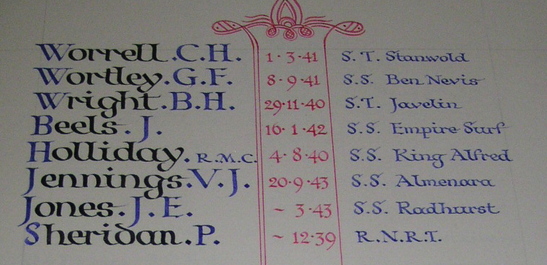 Worrell.C.H. 1·3·41 S.T. Stanwold
Wortley.G.F. 8·9·41 S.S. Ben Nevis
Wright.B.H. 29·11·40 S.T. Javelin
Beels.J. 16·1·42 S.S. Empire Surf
Holliday.R.M.C. 4·8·40 S.S. King Alfred
Jennings.V.J. 20·9·43 S.S. Almenara
Jones.J.E. ~ 3·43 S.S. Radhurst
Sheridan.P. ~ 12·39 R.N.R.T.